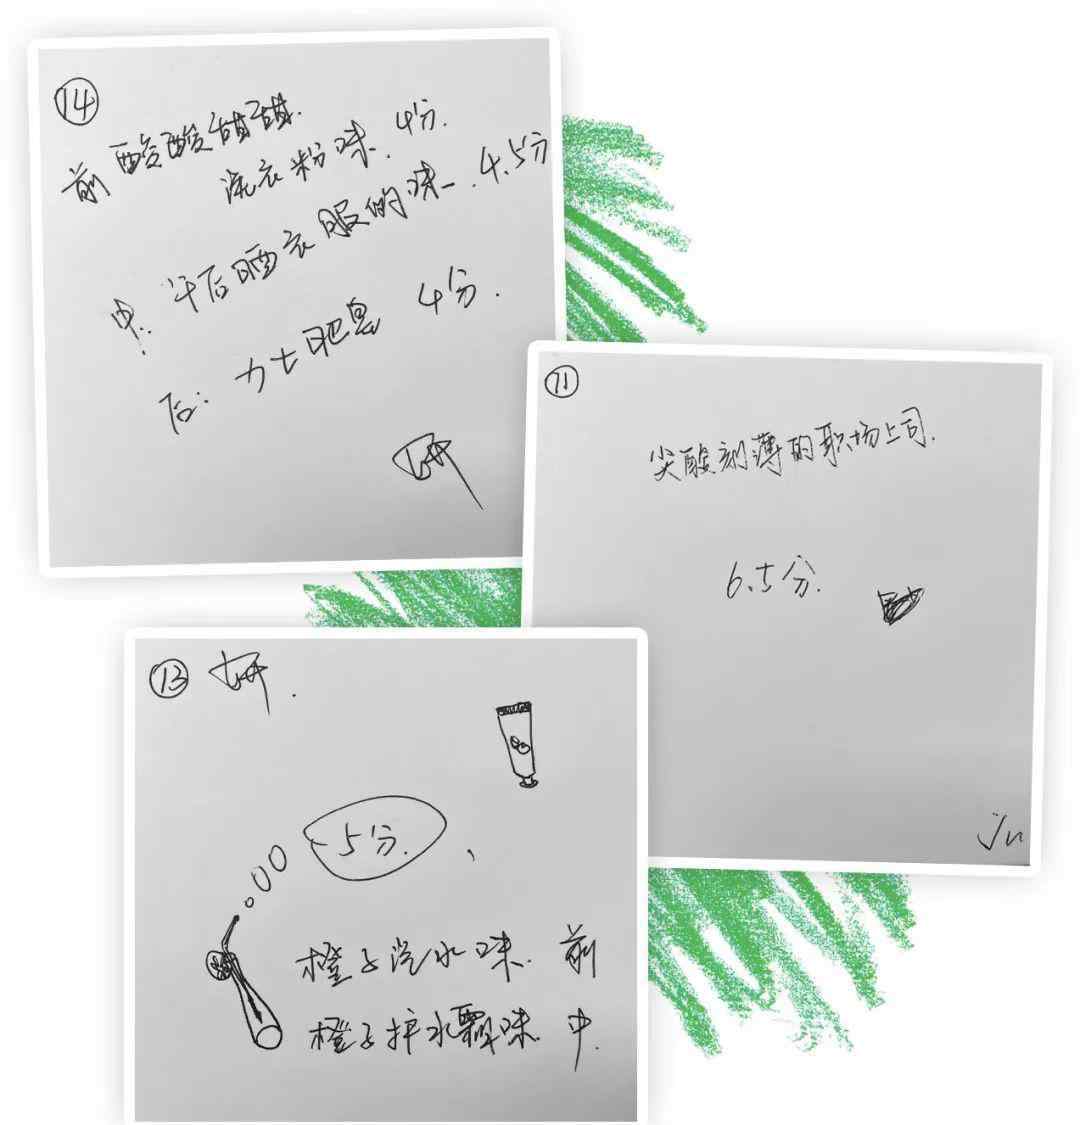 ⑭
前 酸酸甜甜.
洗衣粉味. 4分.
中: 午后晒衣服的味. 4.5分
后: 力士肥皂 4分.
研
⑪
尖酸刻薄的职场上司.
6.5分.
⑬ 研.
5分.
橙子汽水味. 前
橙子护水霜味 中.